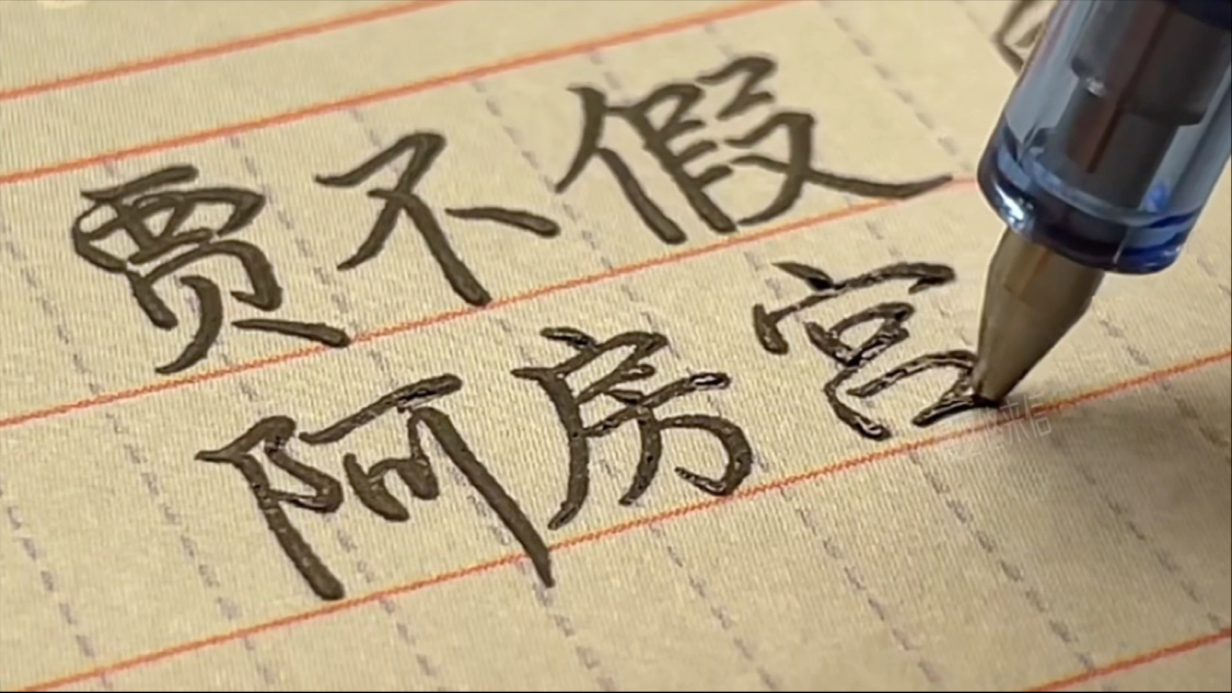 贾不假
阿房宫